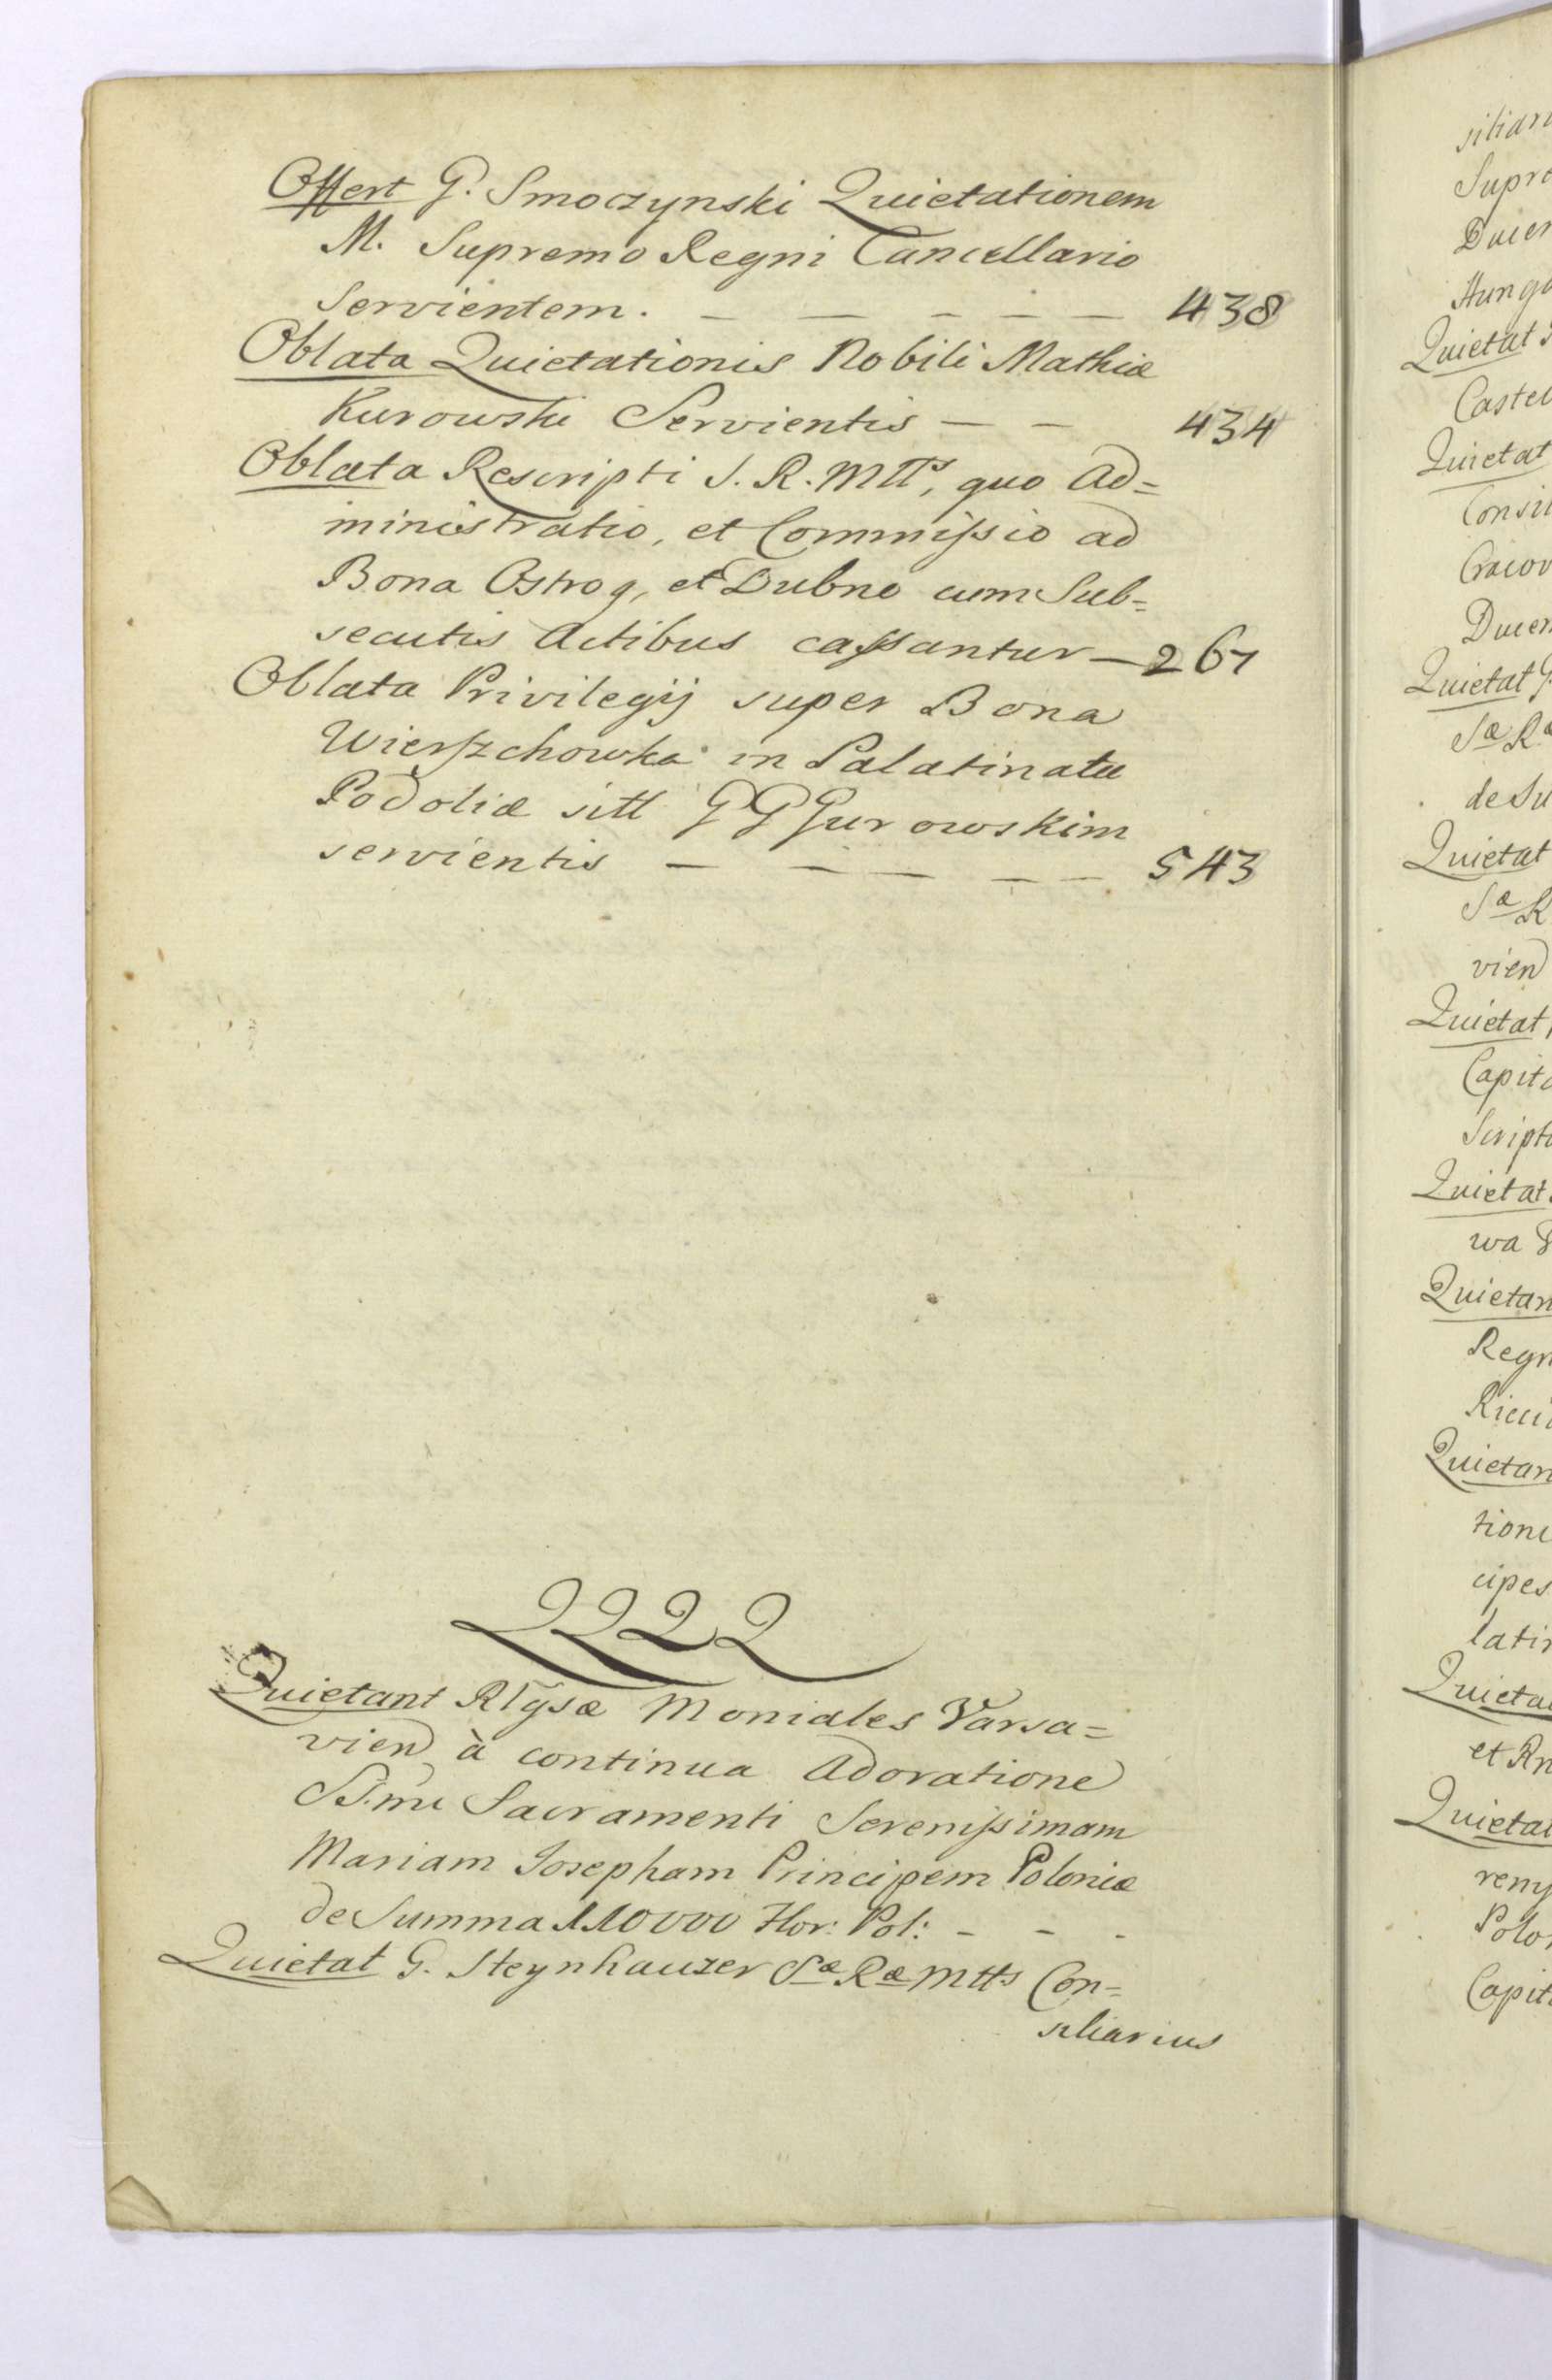 Offert G. Smoczynski Quietationem
M. Supremo Regni Cancellario
Servientem. — — — — — 438
Oblata Quietationis Nobili Mathiæ
Kurowski Servientis — — 434
Oblata Rescripti S. R. Mtts, quo Ad=
ministratio, et Commissio ad
Bona Ostrog, et Dubno cum Sub=
secutis Actibus cassantur — 267
Oblata Privilegij super Bona
Wierszchowka in Palatinatu
Podoliæ sitt GG Gurowskim
servientis — — — — — 543
QQQQ
Quietant Rlgsæ Moniales Varsa=
vien à continua Adoratione
SS.mi Sacramenti Serenissimam
Mariam Josepham Principem Poloniæ
de Summa 110000 Flor: Pol: - - -
Quietat G. Steynhauzer Sæ Ræ Mtts Con=
siliarius
siliari
Supre
Ducen
Hunga
Quietat
Castel
Quietat
Consil
Cracov
Ducen
Quietat G
Sæ Ræ
de Su
Quietat
Sæ R
vien
Quietat
Capit
Script
Quietat
wa
Quietan
Regn
Ricci
Quietan
tione
cipes
latin
Quieta
et Rn
Quietat
Polon
Capit